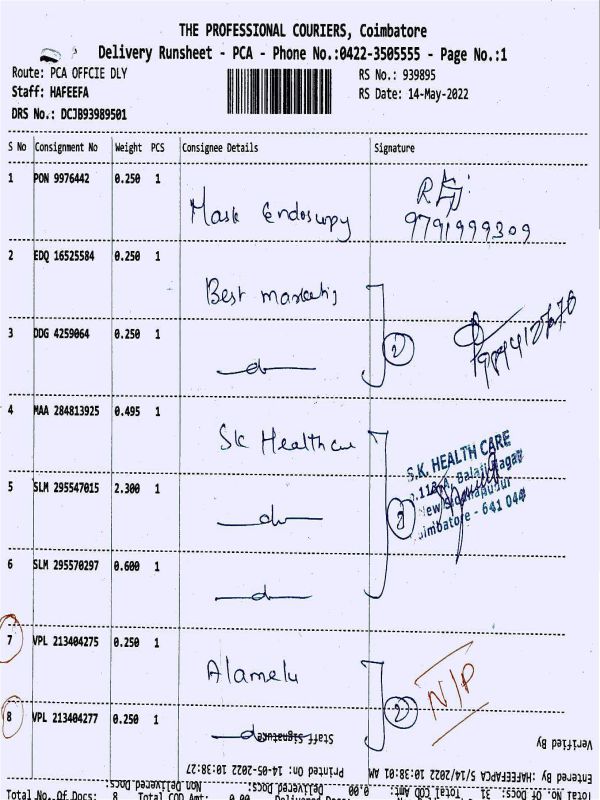 THE PROFESSIONAL COURIERS, Coimbatore
Delivery Runsheet - PCA - Phone No.:0422-3505555 - Page No.:1
Route: PCA OFFCIE DLY RS No.: 939895
Staff: HAFEEFA RS Date: 14-May-2022
DRS No.: DCJB93989501
S No Consignment No Weight PCS Consignee Details Signature
1 PON 9976442 0.250 1
Mask Endoscopy
9791999309
2 EDQ 16525584 0.250 1
Best marketing
3 DDG 4259064 0.250 1
do
2
4 MAA 284813925 0.495 1
SK Healthcare
S.K. HEALTH CARE
Balaji Nagar
5 SLM 295547015 2.300 1
do
3
New Siddhapudur
Coimbatore - 641 044
6 SLM 295570297 0.600 1
do
7 VPL 213404275 0.250 1
Alamelu
N/P
2
8 VPL 213404277 0.250 1
do
Staff Signature
Verified By
Printed On: 14-05-2022 10:38:27
Entered By: HAFEEFAPCA 5/14/2022 10:38:01 AM
Non Delivered Docs:
Delivered Docs:
Total No. Of Docs: 31 Total COD Amt: 0.00
Total No. Of Docs: 8 Total COD Amt: 0.00 Delivered Docs: